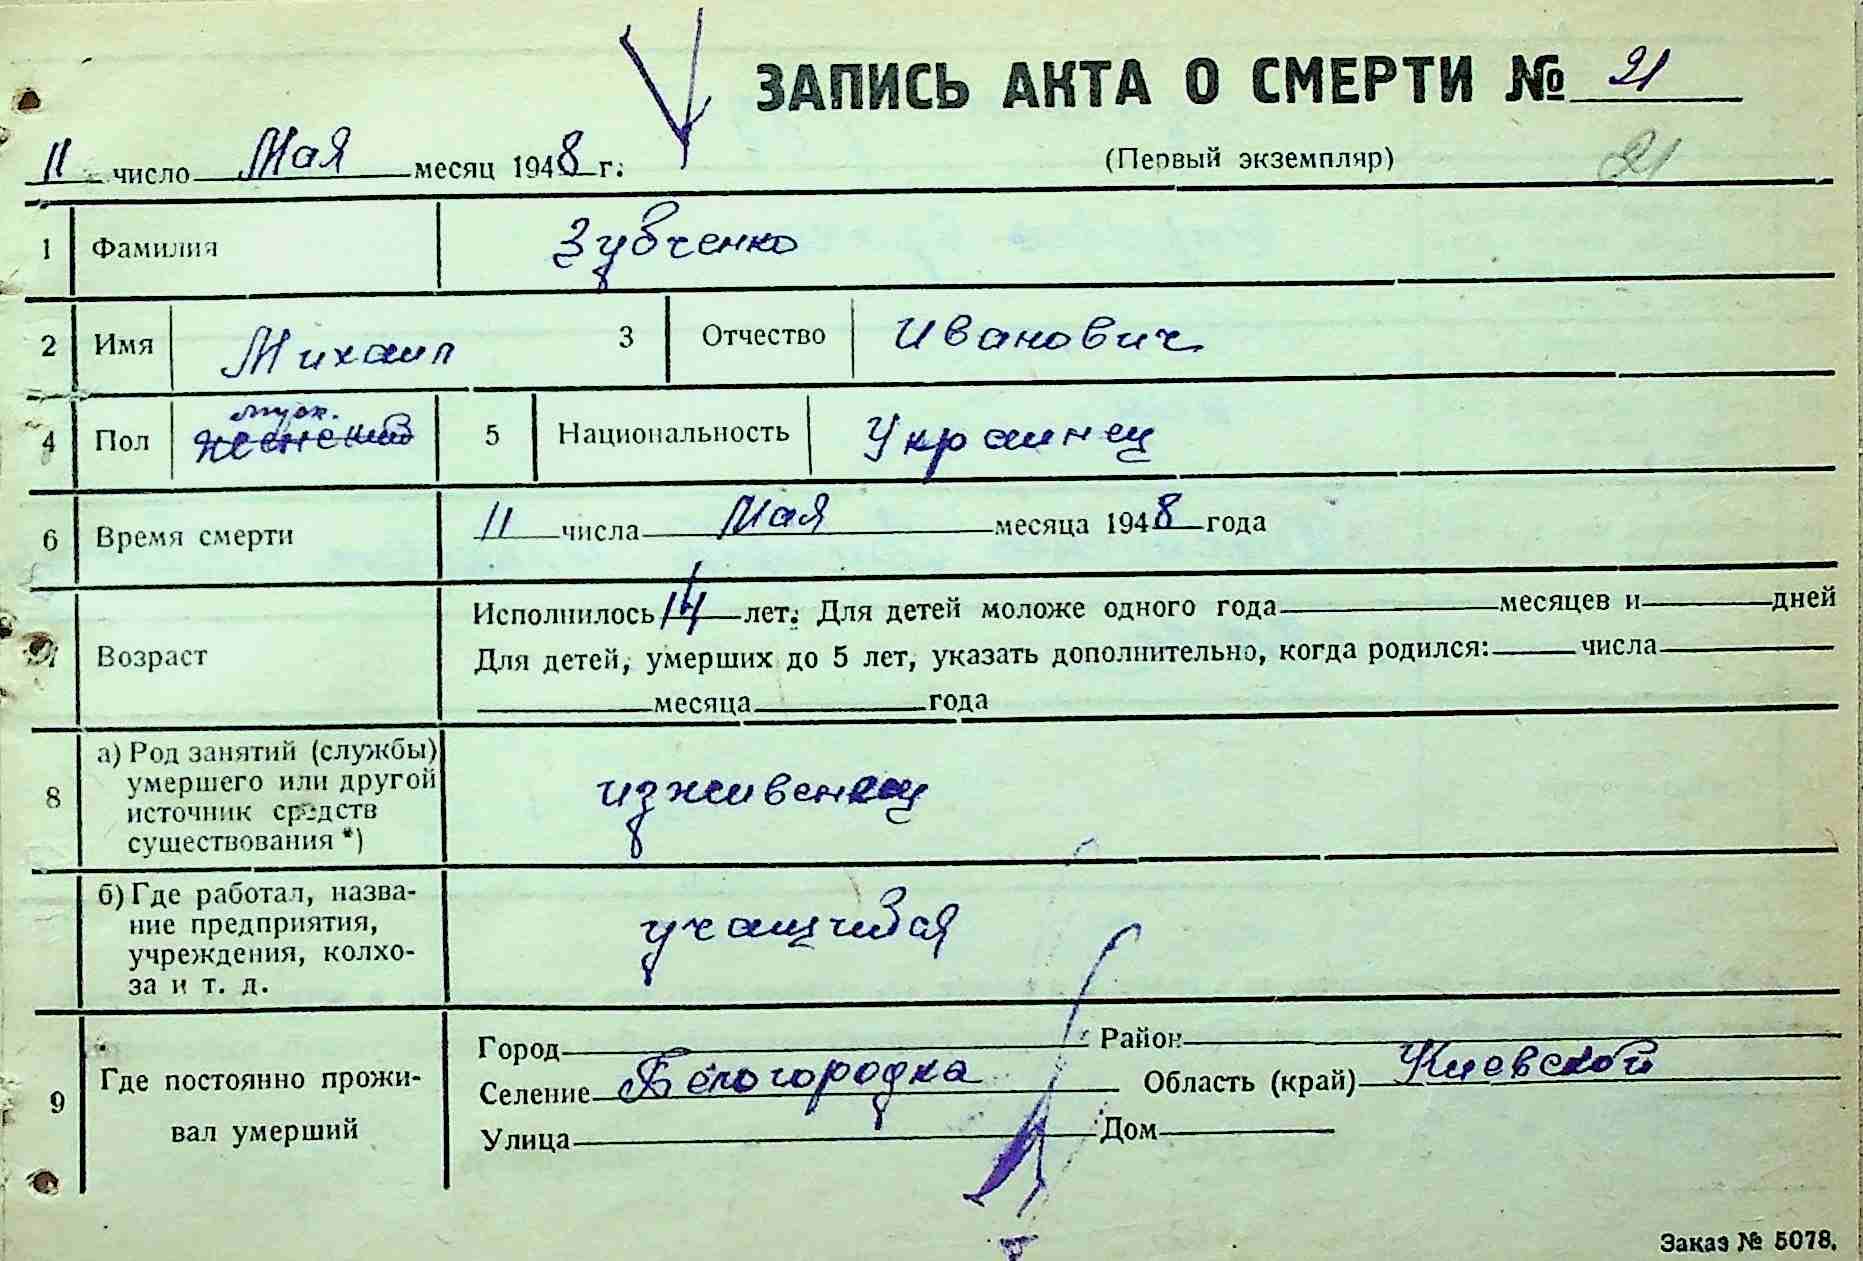 ЗАПИСЬ АКТА О СМЕРТИ № 21
11 число Мая месяц 1948 г.
(Первый экземпляр)
21
1 Фамилия Зубченко
2 Имя Михаил 3 Отчество Иванович
муж.
4 Пол женский 5 Национальность Украинец
6 Время смерти 11 числа Мая месяца 1948 года
Исполнилось 14 лет. Для детей моложе одного года месяцев и дней
7 Возраст Для детей, умерших до 5 лет, указать дополнительно, когда родился: числа
месяца года
8 а) Род занятий (службы)
умершего или другой
источник средств
существования *)
изживенец
б) Где работал, назва-
ние предприятия,
учреждения, колхо-
за и т. д.
учащийся
9 Где постоянно прожи-
вал умерший
Город Район
Селение Белогородка Область (край) Киевской
Улица Дом
Заказ № 5078.